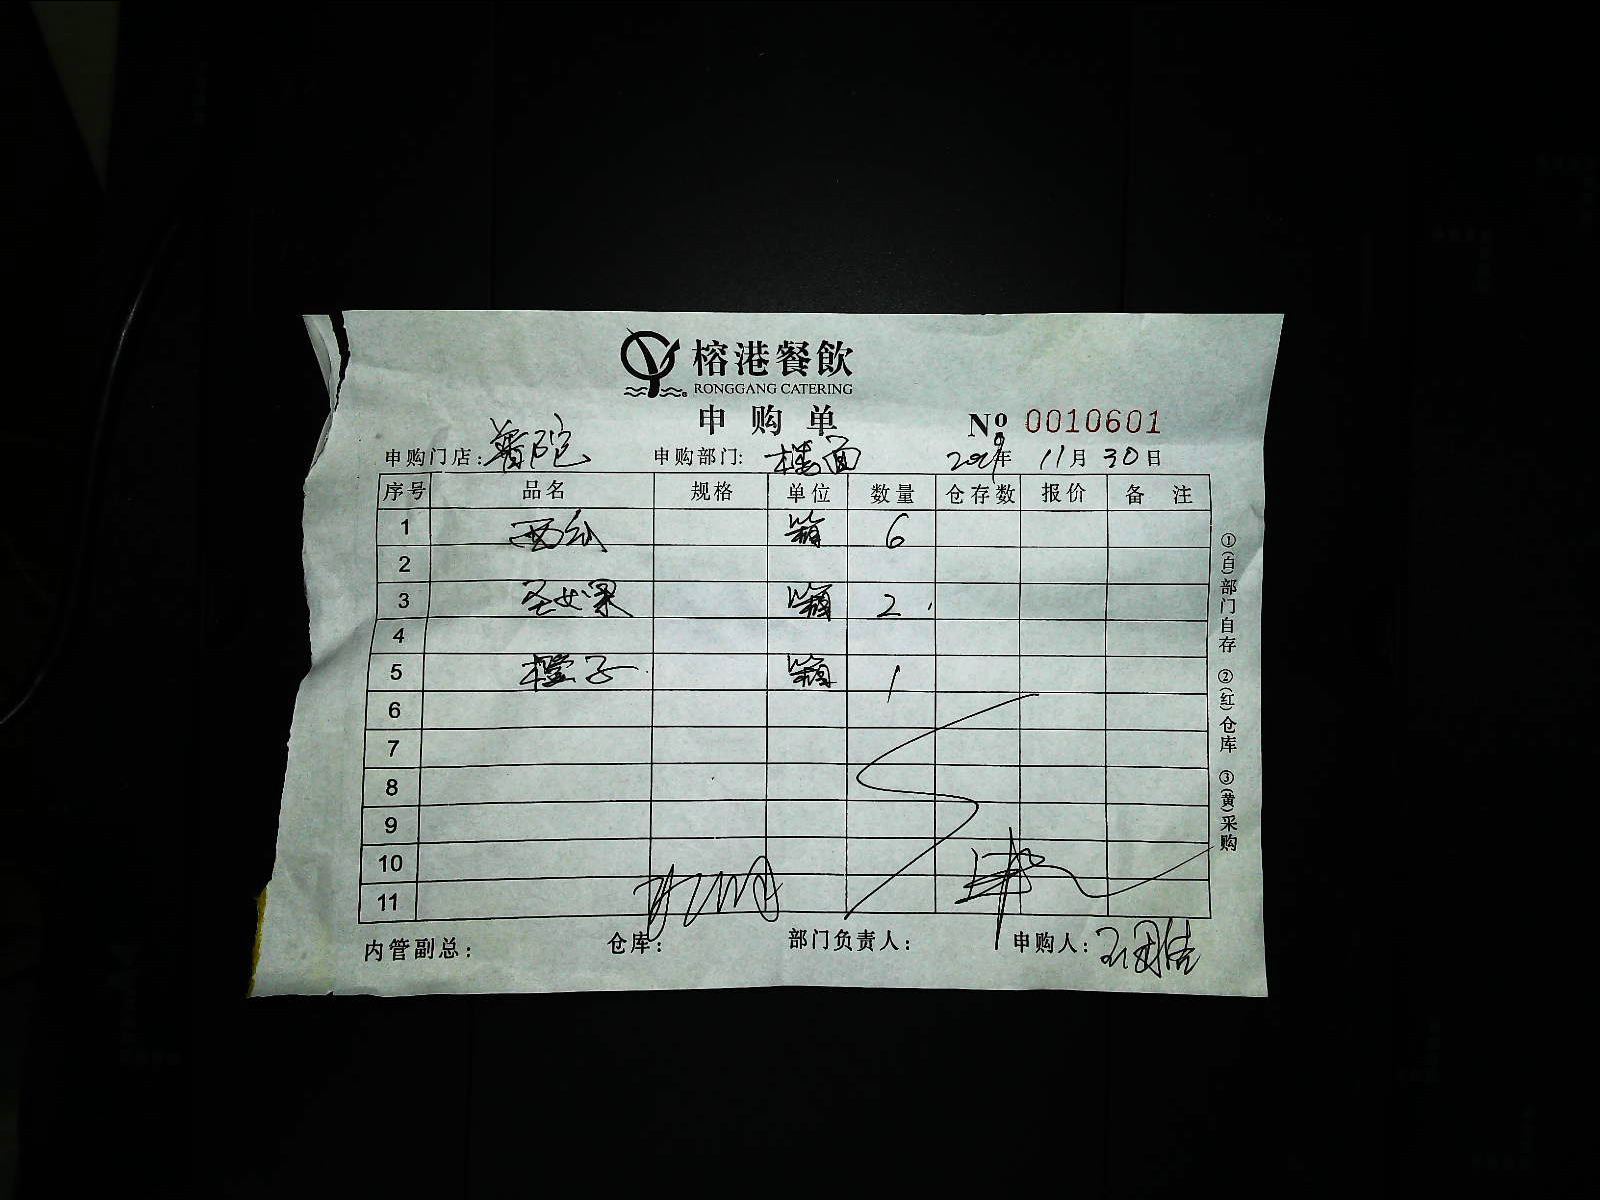 榕港餐飲
RONGGANG CATERING
申购单
№ 0010601
申购门店: 普陀 申购部门: 楼面 2019年 11月 30日
序号 品名 规格 单位 数量 仓存数 报价 备 注
1 西瓜 箱 6
2
3 圣女果 箱 2
4
5 橙子 箱 1
6
7
8
9
10
11
内管副总: 仓库: 部门负责人: 申购人:
①(白)部门自存 ②(红)仓库 ③(黄)采购